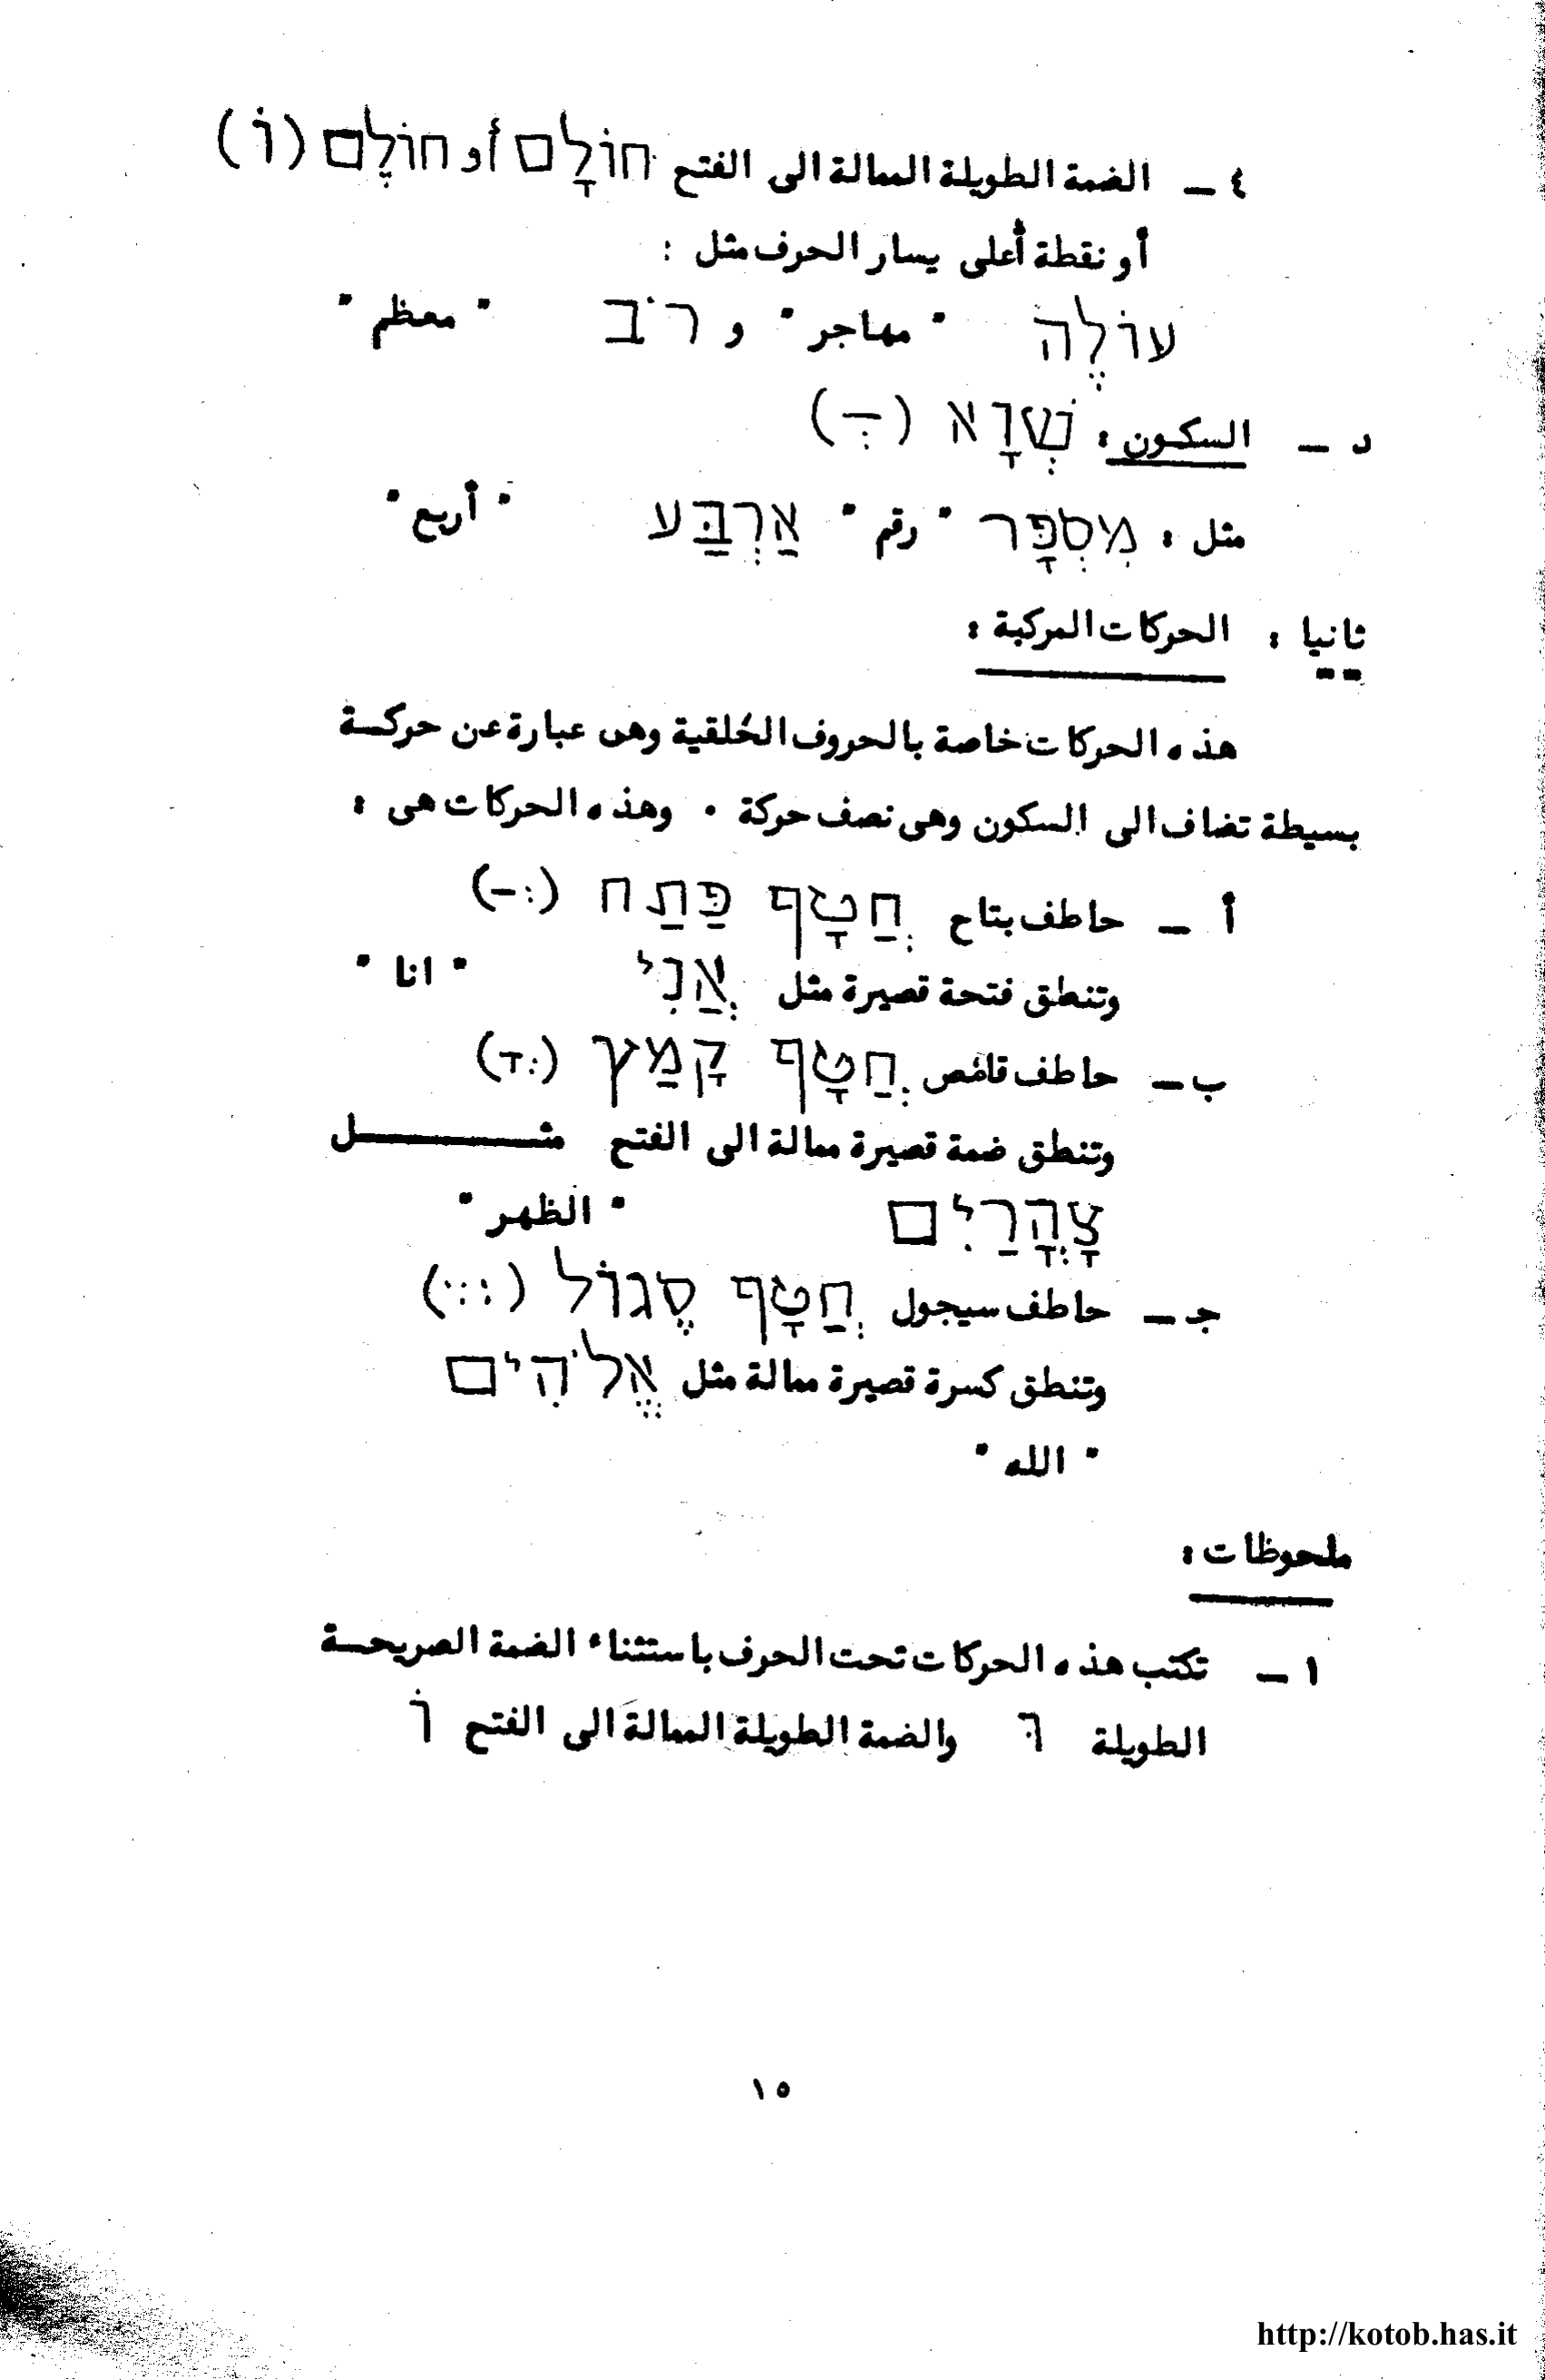 ٤ ـ الضمة الطويلة الممالة الى الفتح חוֹלָם أو חוֹלֶם (וֹ)
أو نقطة أعلى يسار الحرف مثل :
עוֹלֶה " مهاجر " و רֹב " معظم "
د ـ السكون : שְׁוָא (ְ)
مثل : מִסְפָּר " رقم " אַרְבַּע " أربع "
ثانيا : الحركات المركبة :
هذه الحركات خاصة بالحروف الحُلقية وهى عبارة عن حركــة
بسيطة تضاف الى السكون وهى نصف حركة . وهذه الحركات هى :
أ ـ حاطف بتاح חֲטָף פַּתַח (ֲ)
وتنطق فتحة قصيرة مثل אֲנִי " انا "
ب ـ حاطف قامص חֲטָף קָמַץ (ֳ)
وتنطق ضمة قصيرة ممالة الى الفتح مثـــــــــل
צָהֳרַיִם " الظهر "
جـ ـ حاطف سيجول חֲטָף סֶגוֹל (ֱ)
وتنطق كسرة قصيرة ممالة مثل אֱלֹהִים
" الله "
ملحوظات :
١ ـ تكتب هذه الحركات تحت الحرف باستثناء الضمة الصريحــة
الطويلة וּ والضمة الطويلة الممالة الى الفتح וֹ
١٥
http://kotob.has.it